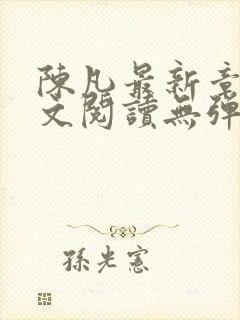 陳凡最新章
文閱讀無彈
孫光憲